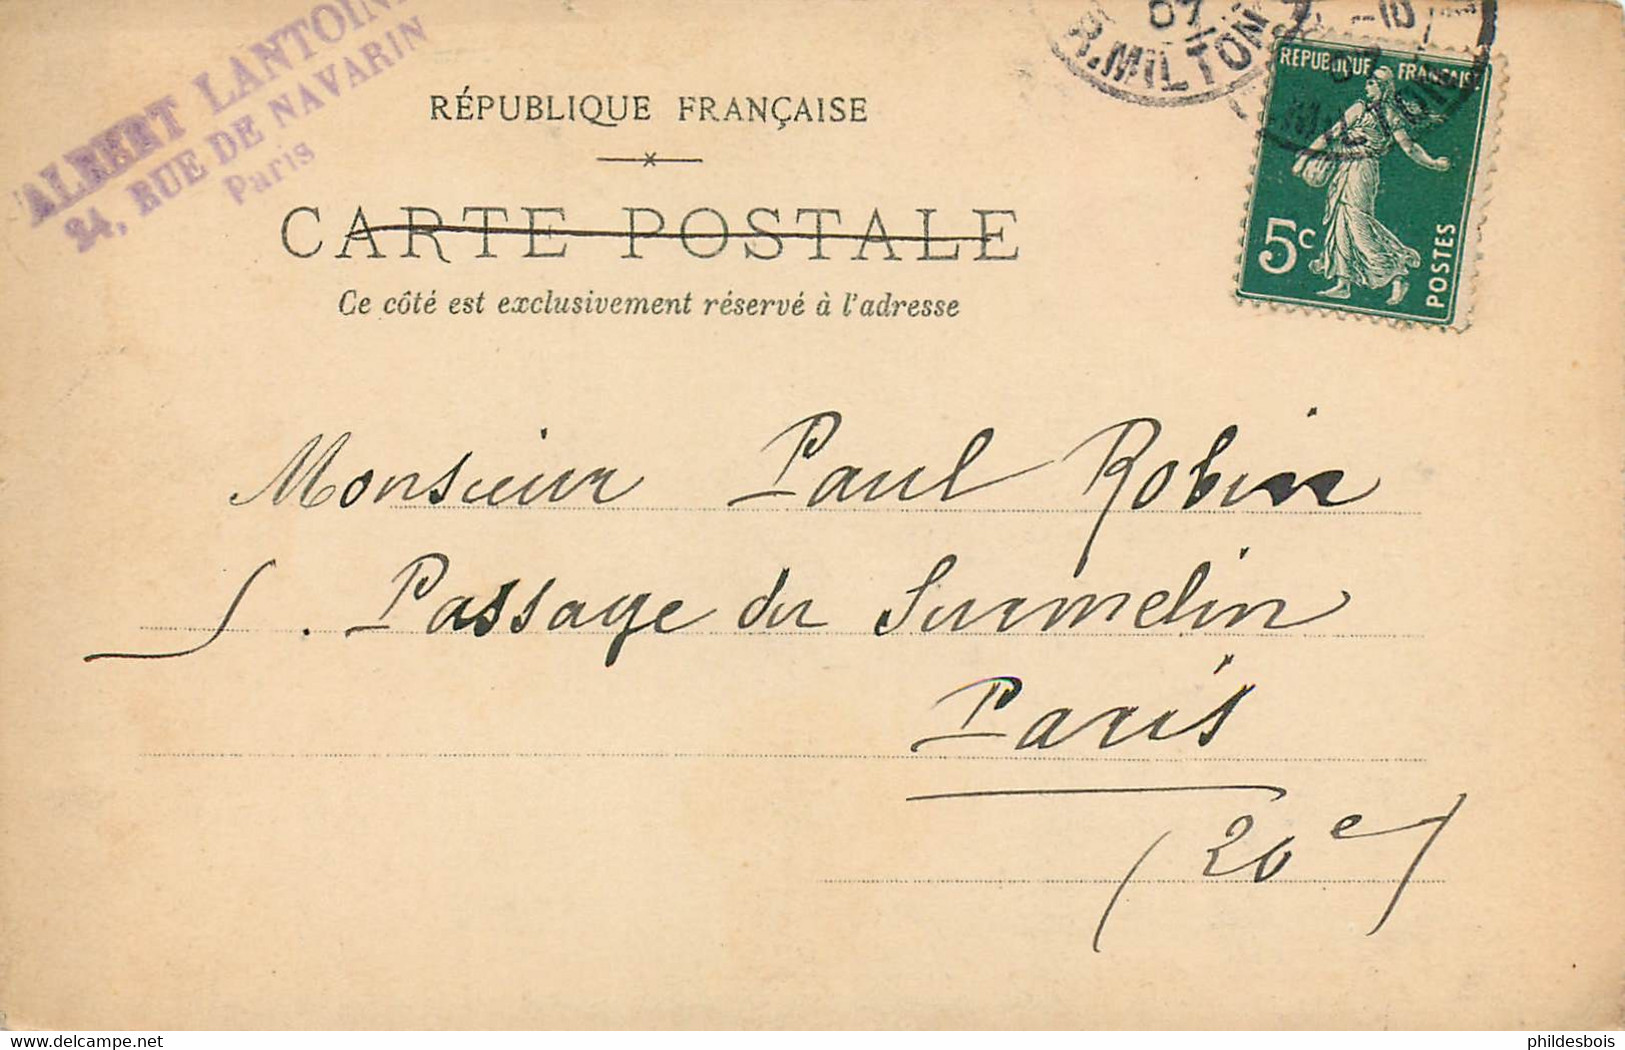 ALBERT LANTOINE
24, RUE DE NAVARIN
Paris
07
R. MILTON
RÉPUBLIQUE FRANÇAISE
CARTE POSTALE
Ce côté est exclusivement réservé à l'adresse
REPUBLIQUE FRANÇAISE
5c
POSTES
Monsieur Paul Robin
5. Passage du Surmelin
Paris
(20e)
delcampe.net
phildesbois